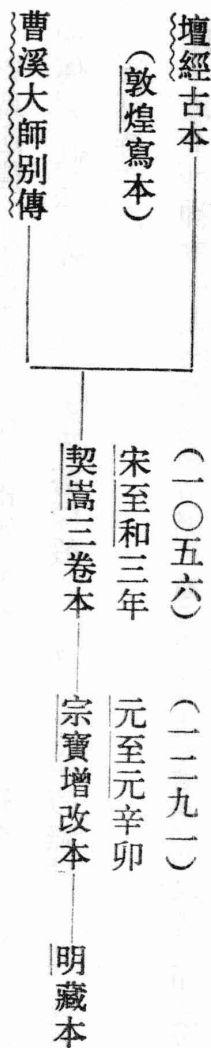 壇經古本
（敦煌寫本）
曹溪大師别傳
（一〇五六）
宋至和三年
契嵩三卷本
（一二九一）
元至元辛卯
宗寶增改本
明藏本